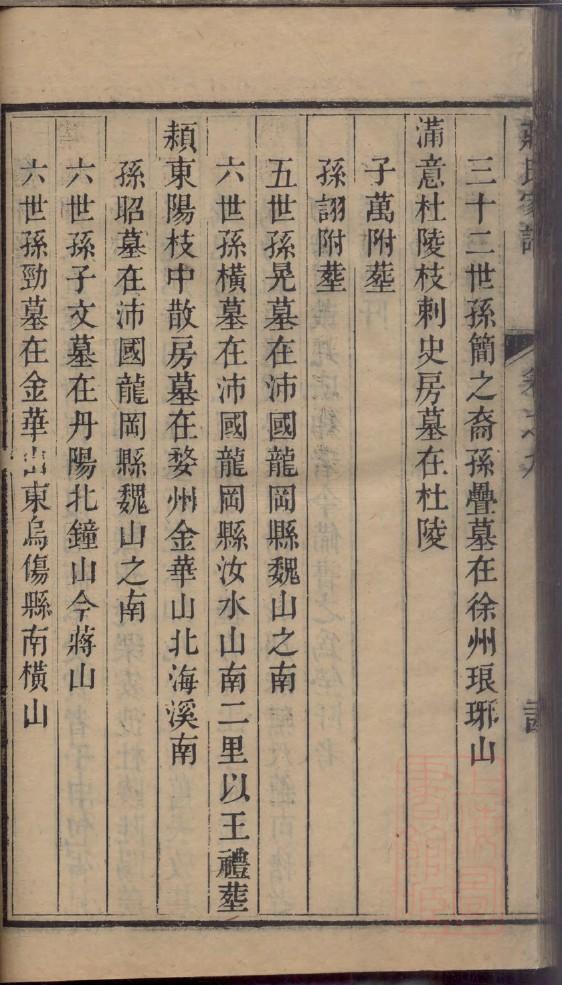 三十二世孫簡之裔孫疊墓在徐州琅琊山
滿意杜陵枝刺史房墓在杜陵
子萬附塟
孫詡附塟
五世孫晃墓在沛國龍岡縣魏山之南
六世孫橫墓在沛國龍岡縣汝水山南二里以王禮塟
頛東陽枝中散房墓在婺州金華山北海溪南
孫昭墓在沛國龍岡縣魏山之南
六世孫子文墓在丹陽北鐘山今蔣山
六世孫勁墓在金華山東烏傷縣南橫山